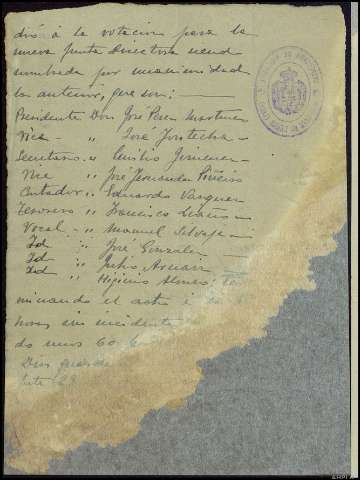 dió á la votacion para la
nueva Junta Directiva siend
nombrada por unanimidad
la anterior, que son:—
Presidente Don José Perez Martinez
Vice — " José
Secretario " Emilio Jimenez
Vice " José Fernandez Piñeiro
Contador " Eduardo Vazquez
Tesorero " Francisco
Vocal — " Manuel
Id " José Gonzalez
Id " Julio
Id " Higinio Alonso; ter
minando el acto á
horas sin incidente
do unos 60
Dios guarde